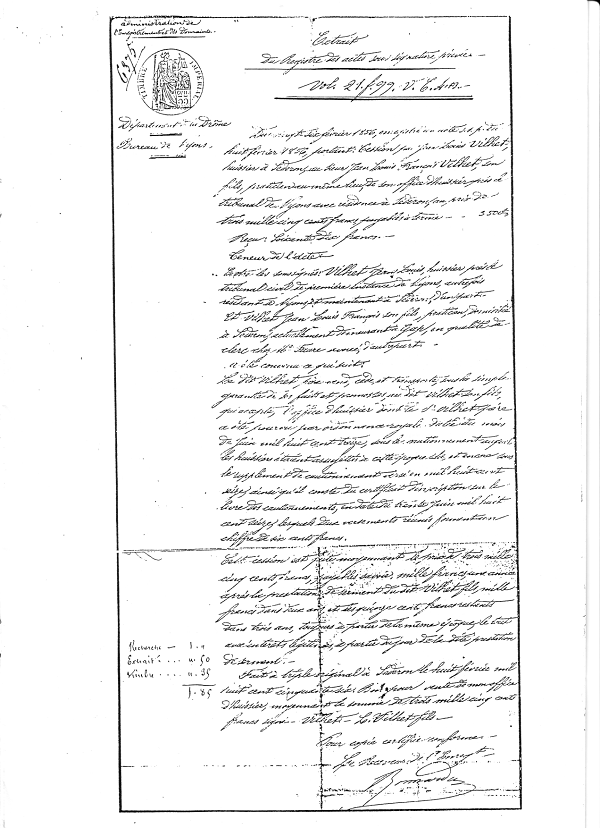 administration de
l'Enregistrement et des Domaines.
6375
TIMBRE IMPERIAL
Département de la Drôme
Bureau de Lyons.
Extrait
Du Registre des actes sous signature privée
Vol. 21. f. 99. V. C.
Du vingt six février 1856, enregistré un acte s.s.p. du
huit février 1856, portant: Cession par Jean Louis Vilhet,
huissier à Séderon, au sieur Jean Louis François Vilhet, son
fils, praticien au même lieu, de son office d'huissier près le
tribunal de Nyons avec résidence à Séderon, au prix de
trois mille cinq cents francs, payables à terme - 3500f
Reçu: Soixante dix francs.
Teneur de l'acte:
Entre les soussignés Vilhet Jean Louis, huissier près le
tribunal civil de première instance de Nyons, autrefois
résidant à Nyons, et maintenant à Séderon, d'une part.
Et Vilhet Jean Louis François son fils, praticien, domicilié
à Séderon, actuellement demeurant à Gap, en qualité de
clerc chez Me Faure avoué, d'autre part.
il a été convenu ce qui suit:
Le dit Vilhet, père vend, cède, et transporte, sous la simple
garantie de ses faits et promesses au dit Vilhet son fils,
qui accepte, l'office d'huissier dont le dt Vilhet père
a été pourvu par ordonnance royale datée du mois
de Juin mil huit cent treize, sous le cautionnement auquel
les huissiers étaient assujettis à cette époque là, et encore sous
le supplément de cautionnement versé en mil huit cent
seize, ainsi qu'il conste du certificat d'inscription sur le
livre des cautionnements, en date du trente Juin mil huit
cent seize, lesquels deux versements réunis forment un
chiffre de six cents francs.
Cette cession est faite moyennant le prix de trois mille
cinq cents francs, payables savoir, mille francs une année
après la prestation de serment du dit Vilhet fils, mille
francs dans deux ans, et les quinze cents francs restants
dans trois ans, toujours à partir de la même époque, le tout
aux intérêts légitimes, à partir du jour de la dite prestation
de serment.
Fait à triple original à Séderon le huit février mil
huit cent cinquante six. Bon pour vente de mon office
d'huissier, moyennant la somme de trois mille cinq cents
francs signé - Vilhet - L. Vilhet fils.
Recherche - 1.
Extrait ... " 50
Timbre ... " 35
1.85
Pour copie certifiée conforme
Le Receveur de l'Enregt